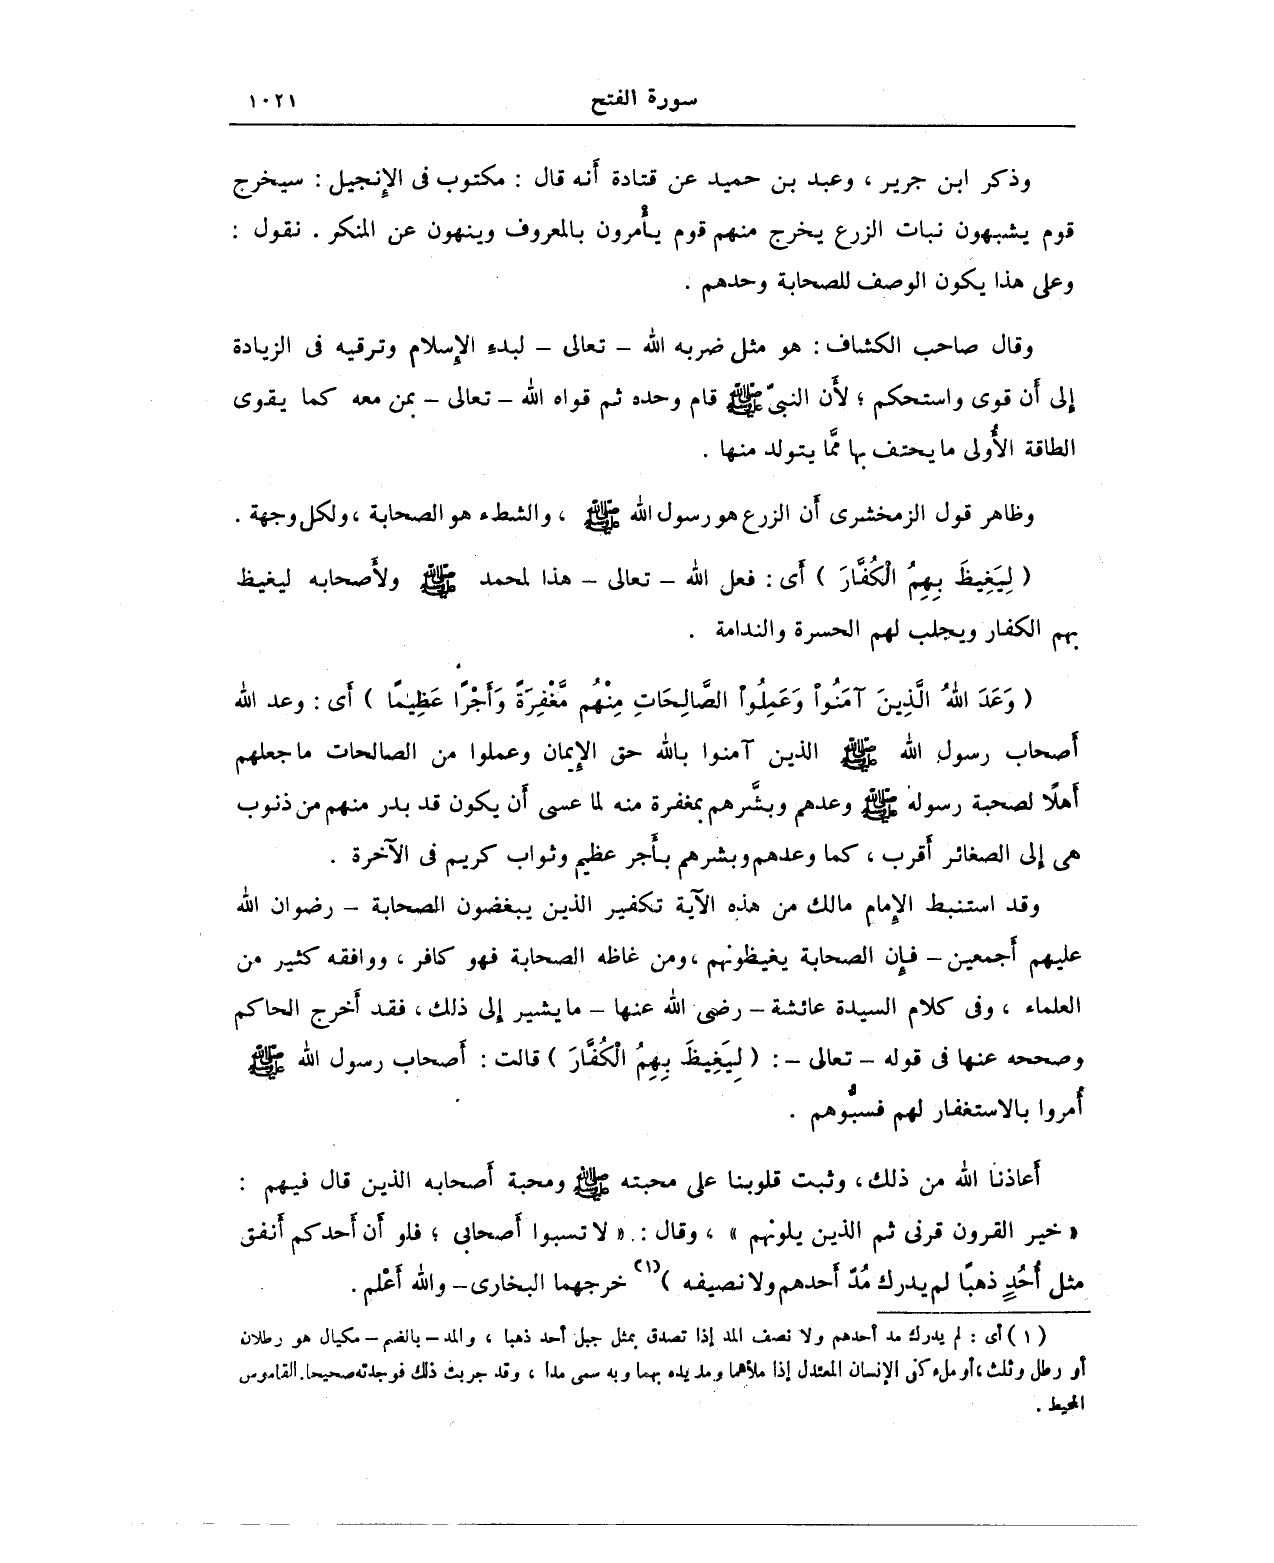 سورة الفتح ١٠٢١
وذكر ابن جرير ، وعبد بن حميد عن قتادة أَنه قال : مكتوب فى الإِنجيل : سيخرج
قوم يشبهون نبات الزرع يخرج منهم قوم يأْمرون بالمعروف وينهون عن المنكر . نقول :
وعلى هذا يكون الوصف للصحابة وحدهم .
وقال صاحب الكشاف : هو مثل ضربه الله – تعالى – لبدءِ الإِسلام وترقيه فى الزيادة
إلى أَن قوى واستحكم ؛ لأَن النبىّ ﷺ قام وحده ثم قواه الله – تعالى – بمن معه كما يقوى
الطاقة الأُولى ما يحتف بها ممَّا يتولد منها .
وظاهر قول الزمخشرى أَن الزرع هو رسول الله ﷺ ، والشطء هو الصحابة ، ولكل وجهة .
( لِيَغِيظَ بِهِمُ الْكُفَّارَ ) أَى : فعل الله – تعالى – هذا لمحمد ﷺ ولأَصحابه ليغيظ
بهم الكفار ويجلب لهم الحسرة والندامة .
( وَعَدَ اللهُ الَّذِينَ آمَنُواْ وَعَمِلُواْ الصَّالِحَاتِ مِنْهُم مَّغْفِرَةً وَأَجْرًا عَظِيمًا ) أَى : وعد الله
أَصحاب رسول الله ﷺ الذين آمنوا بالله حق الإِيمان وعملوا من الصالحات ما جعلهم
أَهلًا لصحبة رسوله ﷺ وعدهم وبشَّرهم بمغفرة منه لما عسى أَن يكون قد بدر منهم من ذنوب
هى إلى الصغائر أَقرب ، كما وعدهم وبشرهم بأَجر عظيم وثواب كريم فى الآخرة .
وقد استنبط الإِمام مالك من هذه الآية تكفير الذين يبغضون الصحابة – رضوان الله
عليهم أَجمعين – فإِن الصحابة يغيظونهم ، ومن غاظه الصحابة فهو كافر ، ووافقه كثير من
العلماء ، وفى كلام السيدة عائشة – رضى الله عنها – ما يشير إلى ذلك ، فقد أَخرج الحاكم
وصححه عنها فى قوله – تعالى – : ( لِيَغِيظَ بِهِمُ الْكُفَّارَ ) قالت : أَصحاب رسول الله ﷺ
أُمروا بالاستغفار لهم فسبُّوهم .
أَعاذنا الله من ذلك ، وثبت قلوبنا على محبته ﷺ ومحبة أَصحابه الذين قال فيهم :
« خير القرون قرنى ثم الذين يلونهم » ، وقال : « لا تسبوا أَصحابى ؛ فلو أَن أَحدكم أَنفق
مثل أُحُدٍ ذهبًا لم يدرك مُدّ أَحدهم ولا نصيفه )(١) خرجهما البخارى – والله أَعْلم .
( ١ ) أى : لم يدرك مد أحدهم ولا نصف المد إذا تصدق بمثل جبل أحد ذهبا ، والمد – بالضم – مكيال هو رطلان
أو رطل وثلث ، أو ملء كفى الإنسان المعتدل إذا ملأهما ومد يده بهما وبه سمى مدا ، وقد جربت ذلك فوجدته صحيحا. القاموس
المحيط .